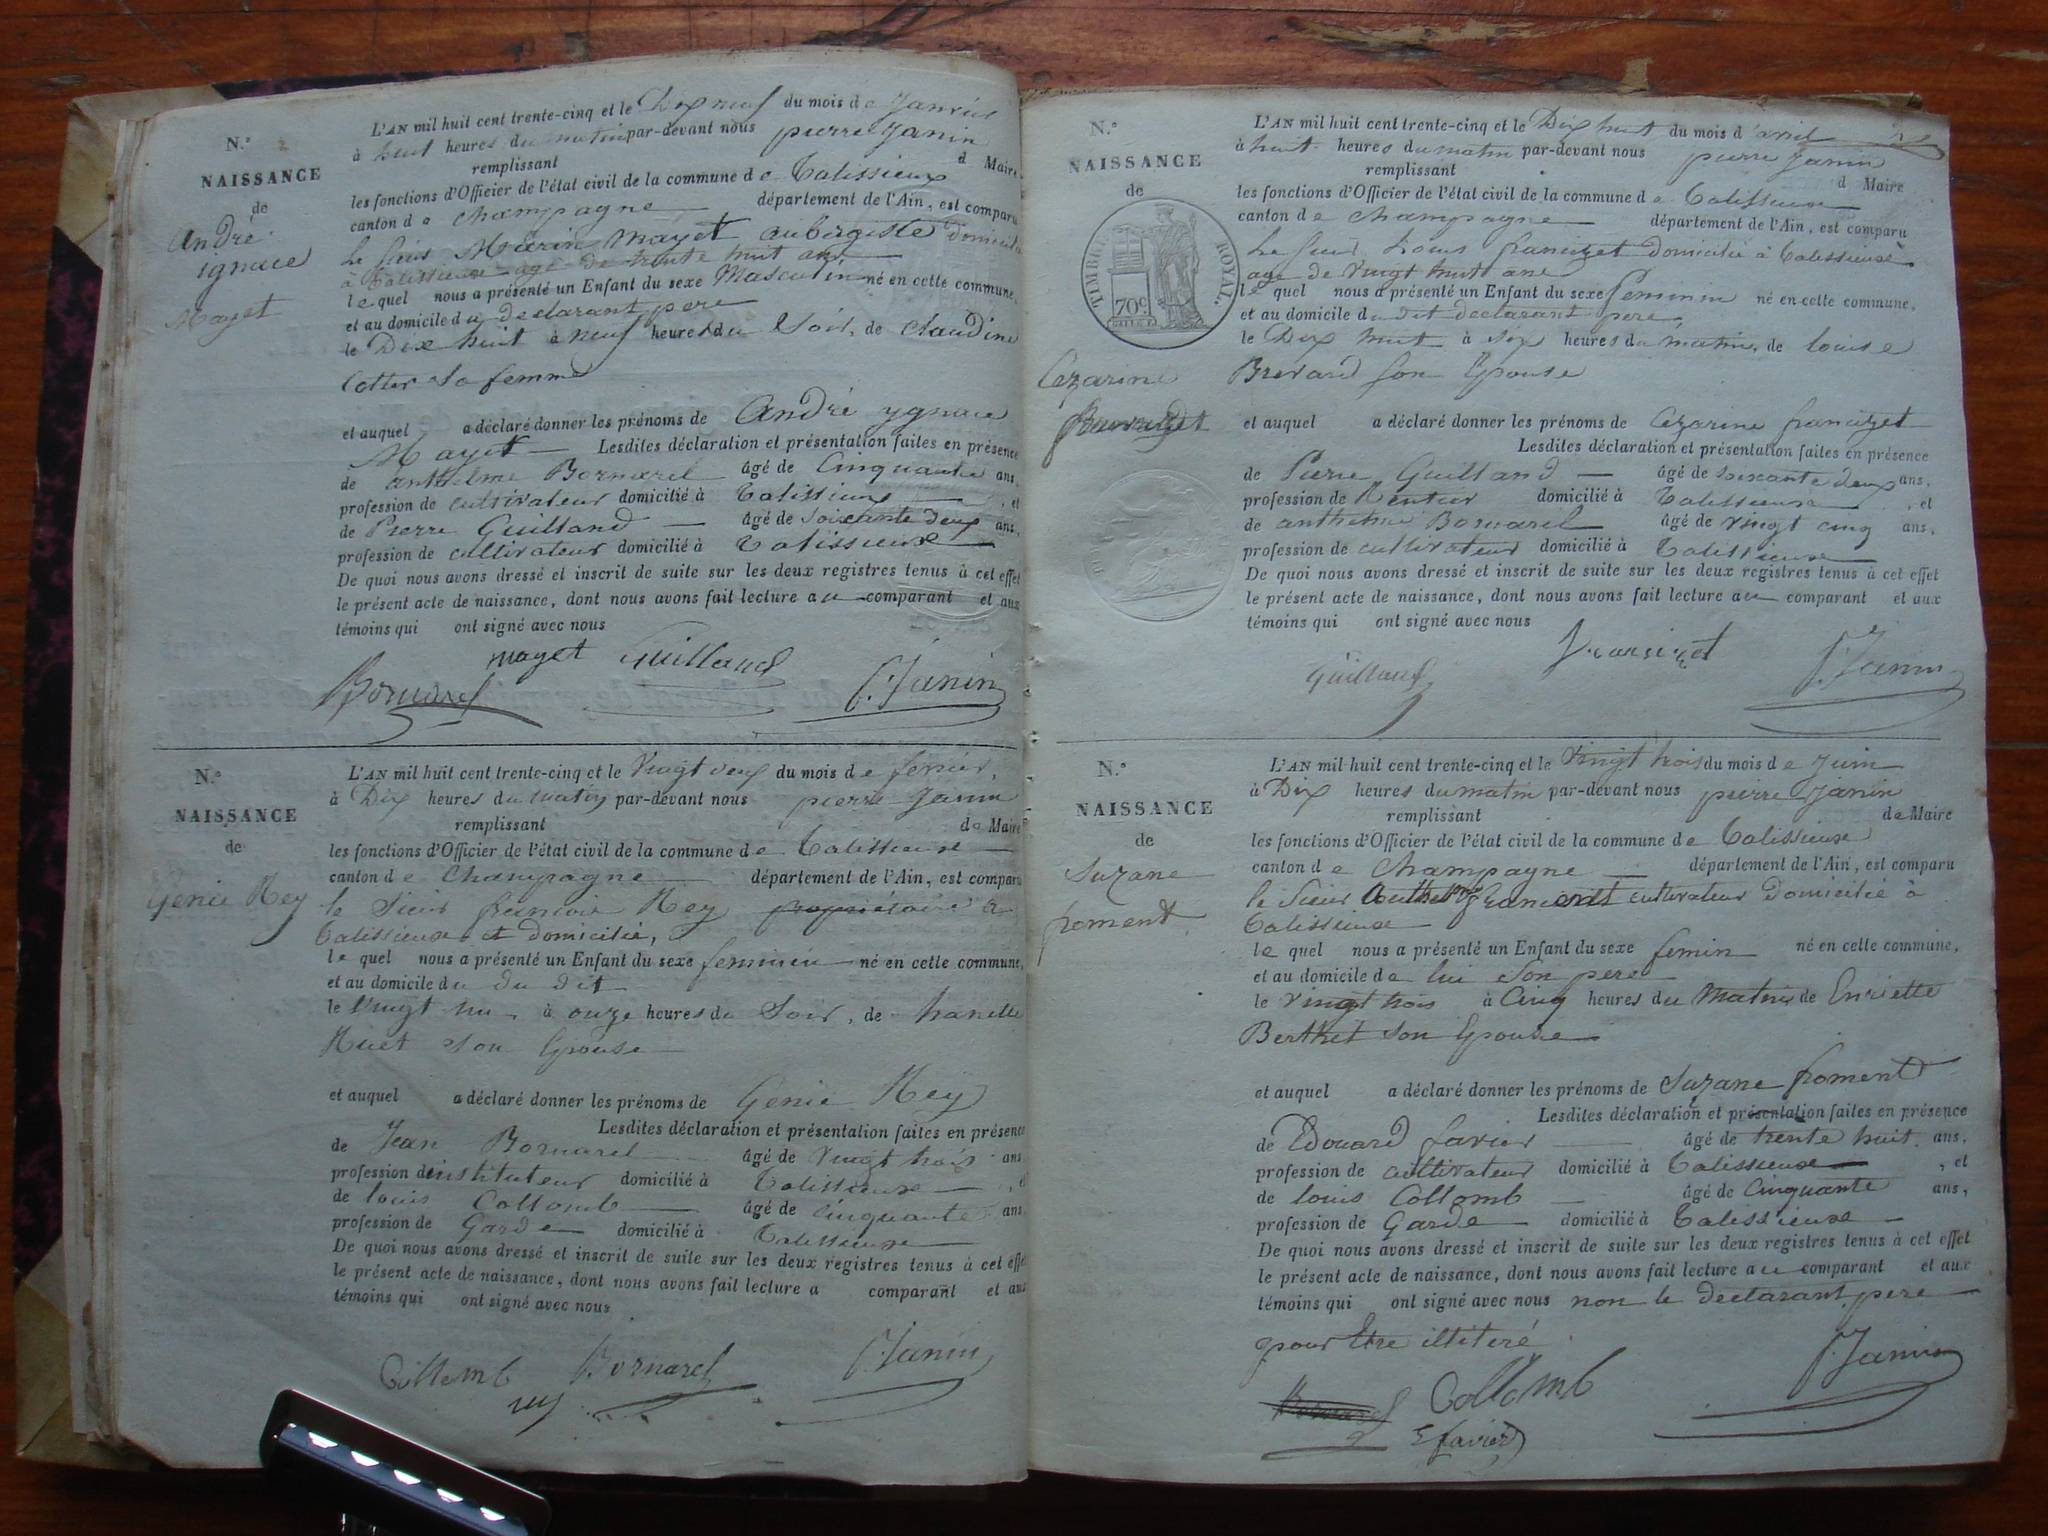 N.o 2
NAISSANCE
de
André
ignace
Mayet
L'AN mil huit cent trente-cinq et le Dix neuf du mois de Janvier
à huit heures du matin par-devant nous pierre Janin
remplissant d Maire
les fonctions d'Officier de l'état civil de la commune de Talissieux
canton de Champagne département de l'Ain, est comparu
Le sieur Marin Mayet aubergiste domicilié
à Talissieux agé de trente huit ans
lequel nous a présenté un Enfant du sexe Masculin né en cette commune,
et au domicile du declarant pere
le Dix huit à neuf heures du Soir, de claudine
Cotter sa femme
et auquel a déclaré donner les prénoms de André ygnace
Mayet Lesdites déclaration et présentation faites en présence
de anthelme Bornarel âgé de Cinquante ans,
profession de cultivateur domicilié à Talissieux, et
de Pierre Guilland âgé de soixante deux ans,
profession de cultivateur domicilié à Talissieux
De quoi nous avons dressé et inscrit de suite sur les deux registres tenus à cet effet
le présent acte de naissance, dont nous avons fait lecture au comparant et aux
témoins qui ont signé avec nous
mayet Guilland
Bornarel P. Janin
N.o
NAISSANCE
de
Genie Rey
L'AN mil huit cent trente-cinq et le Vingt deux du mois de fevrier,
à Dix heures du matin par-devant nous pierre Janin
remplissant de Maire
les fonctions d'Officier de l'état civil de la commune de Talissieux
canton de Champagne département de l'Ain, est comparu
le Sieur francois Rey propriétaire a
Talissieux et domicilié,
lequel nous a présenté un Enfant du sexe feminin né en cette commune,
et au domicile du du dit
le Vingt un à onze heures du Soir, de
Ruet son Epouse
et auquel a déclaré donner les prénoms de Genie Rey
Lesdites déclaration et présentation faites en présence
de Jean Bornarel âgé de vingt trois ans
profession d'instituteur domicilié à Talissieux, et
de louis Collomb âgé de cinquante ans
profession de Garde domicilié à Talissieux
De quoi nous avons dressé et inscrit de suite sur les deux registres tenus à cet effet
le présent acte de naissance, dont nous avons fait lecture a comparant et aux
témoins qui ont signé avec nous
Collomb Bornarel P. Janin
rey
N.o
NAISSANCE
de
TIMBRE ROYAL.
70c.
Cezarine
L'AN mil huit cent trente-cinq et le Dix huit du mois d'avril
à huit heures du matin par-devant nous pierre Janin
remplissant d Maire
les fonctions d'Officier de l'état civil de la commune de Talissieux
canton de Champagne département de l'Ain, est comparu
Le sieur louis francizet Domicilié à Talissieux
age de vingt huit ans
lequel nous a présenté un Enfant du sexe feminin né en cette commune,
et au domicile du dit declarant pere,
le Dix huit à six heures du matin, de louise
Brevard son Epouse
et auquel a déclaré donner les prénoms de Cezarine francizet
Lesdites déclaration et présentation faites en présence
de Pierre Guilland âgé de soixante deux ans,
profession de Rentier domicilié à Talissieux, et
de anthelme Bornarel âgé de vingt cinq ans,
profession de cultivateur domicilié à Talissieux
De quoi nous avons dressé et inscrit de suite sur les deux registres tenus à cet effet
le présent acte de naissance, dont nous avons fait lecture au comparant et aux
témoins qui ont signé avec nous
Guilland P. Janin
N.o
NAISSANCE
de
Suzane
froment
L'AN mil huit cent trente-cinq et le Vingt trois du mois de Juin
à Dix heures du matin par-devant nous pierre Janin
remplissant de Maire
les fonctions d'Officier de l'état civil de la commune de Talissieux
canton de Champagne département de l'Ain, est comparu
le Sieur cultivateur Domicilié à
Talissieux
lequel nous a présenté un Enfant du sexe femin né en cette commune,
et au domicile de lui son pere
le vingt trois à Cinq heures du Matin de Enriette
Berthet son Epouse
et auquel a déclaré donner les prénoms de Suzane froment
Lesdites déclaration et présentation faites en présence
de Edouard favier âgé de trente huit ans,
profession de cultivateur domicilié à Talissieux, et
de louis Collomb âgé de Cinquante ans,
profession de Garde domicilié à Talissieux
De quoi nous avons dressé et inscrit de suite sur les deux registres tenus à cet effet
le présent acte de naissance, dont nous avons fait lecture au comparant et aux
témoins qui ont signé avec nous non le declarant pere
pour Etre illitéré
Bornarel Collomb P. Janin
E favier